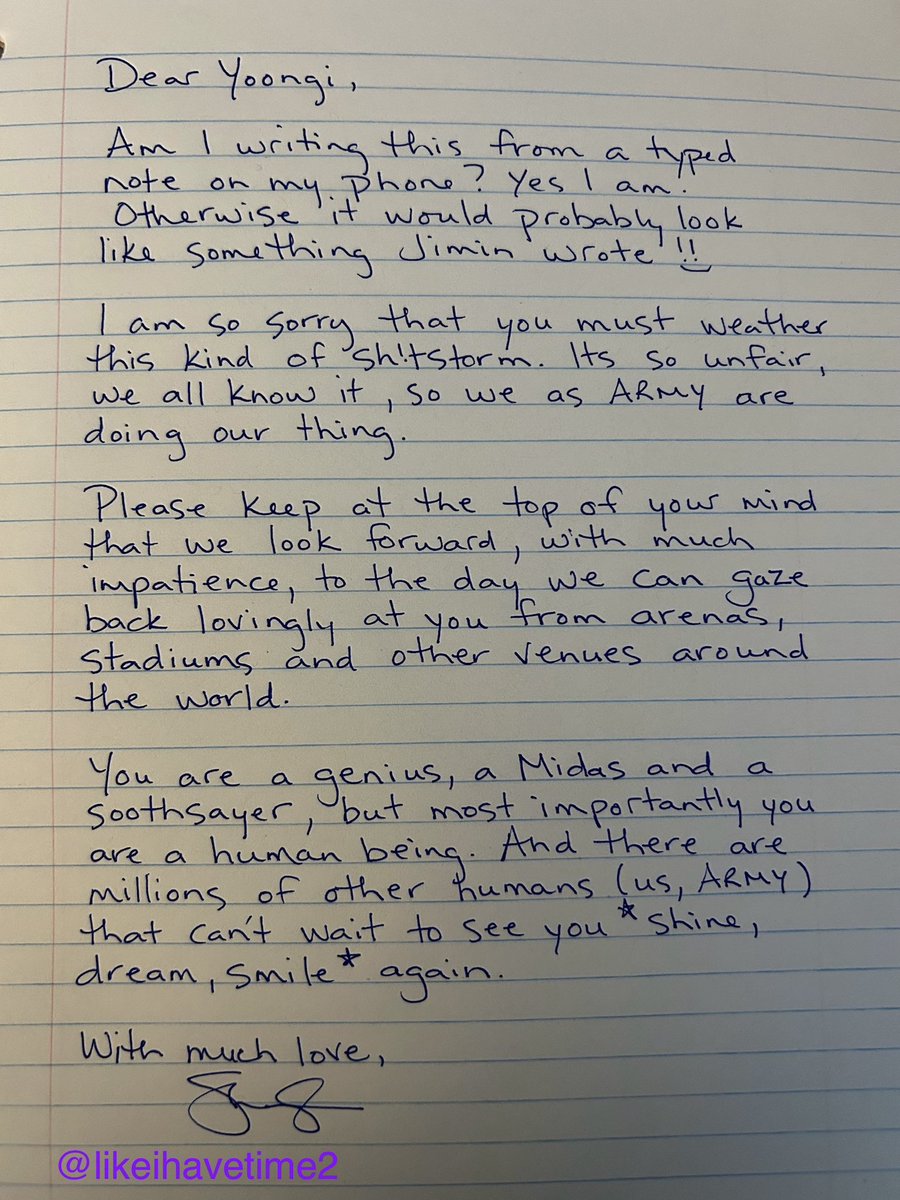 Dear Yoongi,
Am I writing this from a typed
note on my phone? Yes I am.
Otherwise it would probably look
like something Jimin wrote!!
I am so sorry that you must weather
this kind of sh!tstorm. Its so unfair,
we all know it, so we as ARMY are
doing our thing.
Please keep at the top of your mind
that we look forward, with much
impatience, to the day we can gaze
back lovingly at you from arenas,
stadiums and other venues around
the world.
You are a genius, a Midas and a
soothsayer, but most importantly you
are a human being. And there are
millions of other humans (us, ARMY)
that can't wait to see you *shine,
dream, smile* again.
With much love,
@likeihavetime2